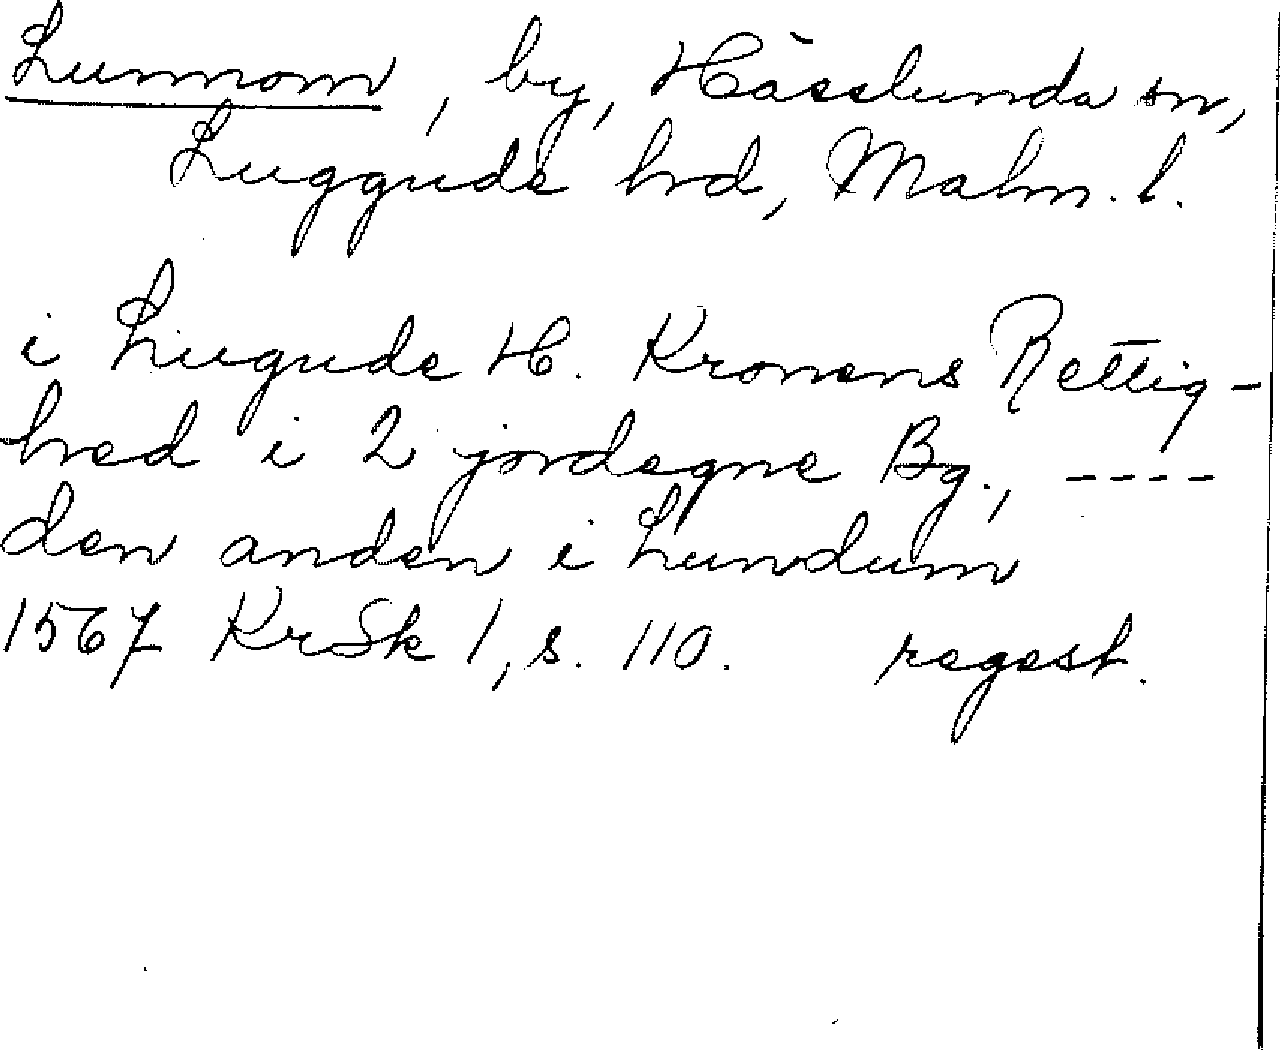 Lunnom, by, Hässlunda sn,
Luggude hrd, Malm. l.
i Liugude H. Kronens Rettig-
hed i 2 jordegne Bg., ----
den anden i Lundum
1567 KrSk 1, s. 110. regest.